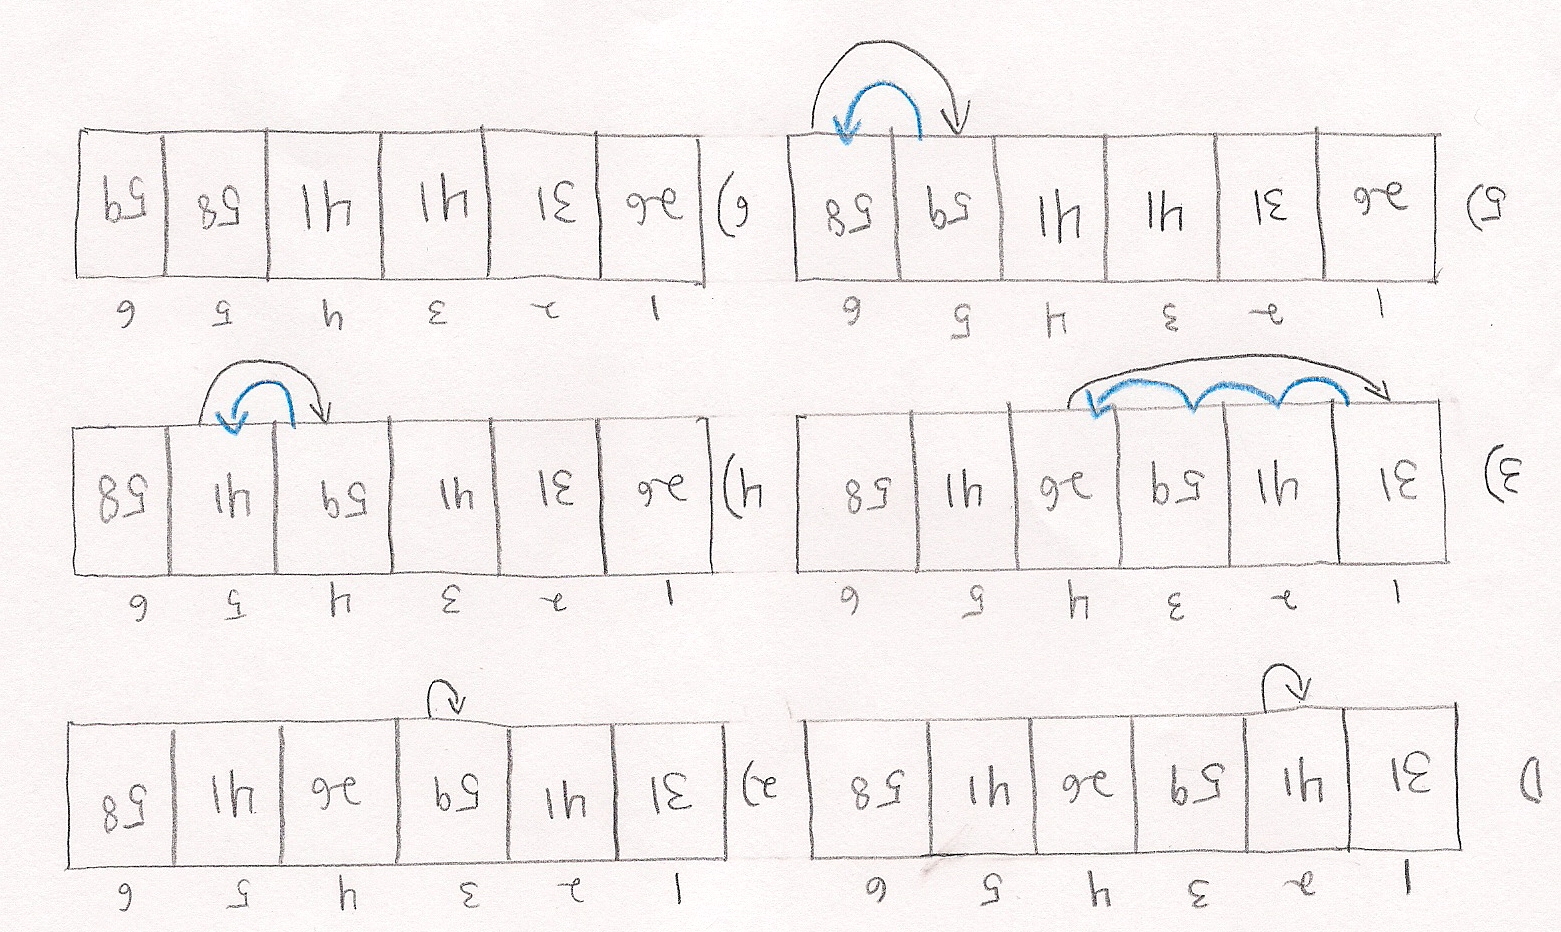 1 2 3 4 5 6
1) 31 41 59 26 41 58
1 2 3 4 5 6
2) 31 41 59 26 41 58
1 2 3 4 5 6
3) 31 41 59 26 41 58
1 2 3 4 5 6
4) 26 31 41 59 41 58
1 2 3 4 5 6
5) 26 31 41 41 59 58
1 2 3 4 5 6
6) 26 31 41 41 58 59